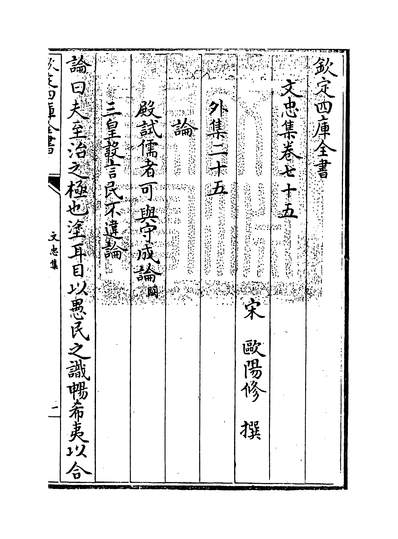 欽定四庫全書
文忠集卷七十五
宋 歐陽修 撰
外集二十五
論
殿試儒者可與守成論闕
三皇設言民不違論
論曰夫至治之極也塗耳目以愚民之識暢希夷以合
欽定四庫全書
文忠集
一